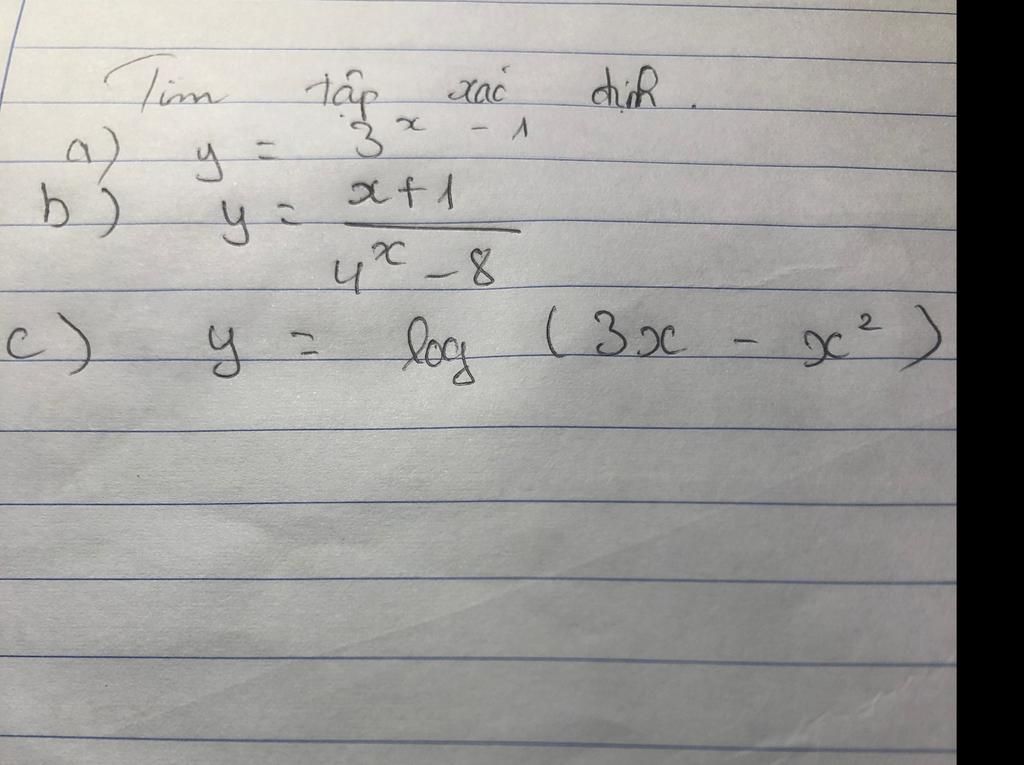 Tìm tập xác định.
a) y = 3^x - 1
b) y = \frac{x+1}{4^x - 8}
c) y = log (3x - x²)